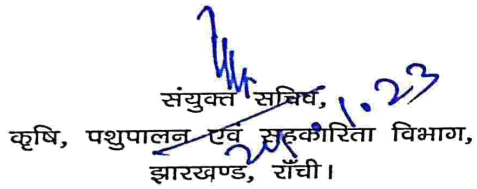 संयुक्त सचिव,
कृषि, पशुपालन एवं सहकारिता विभाग,
झारखण्ड, राँची।